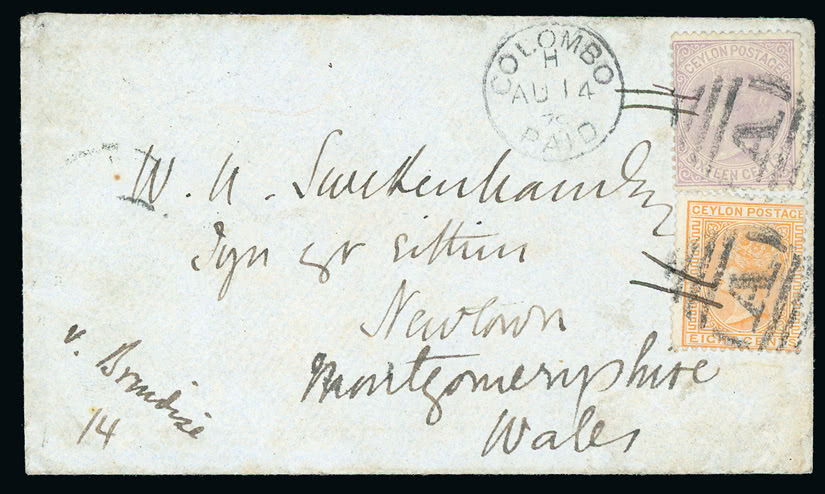 COLOMBO
H
AU 14
PAID
CEYLON POSTAGE
SIXTEEN CE
A
CEYLON POSTAGE
EIGHT CENTS
A
W. N. Swettenham Esq
Newtown
Montgomeryshire
Wales
v. Brindisi
14